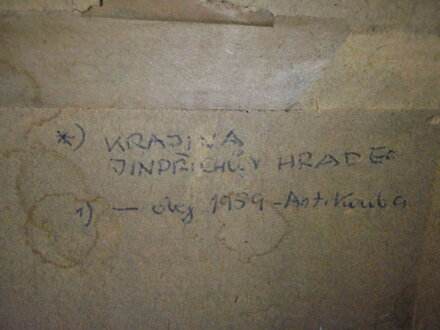 *) KRAJINA
JINDŘICHŮV HRADEC
1) — obj 1939 - Antikuba